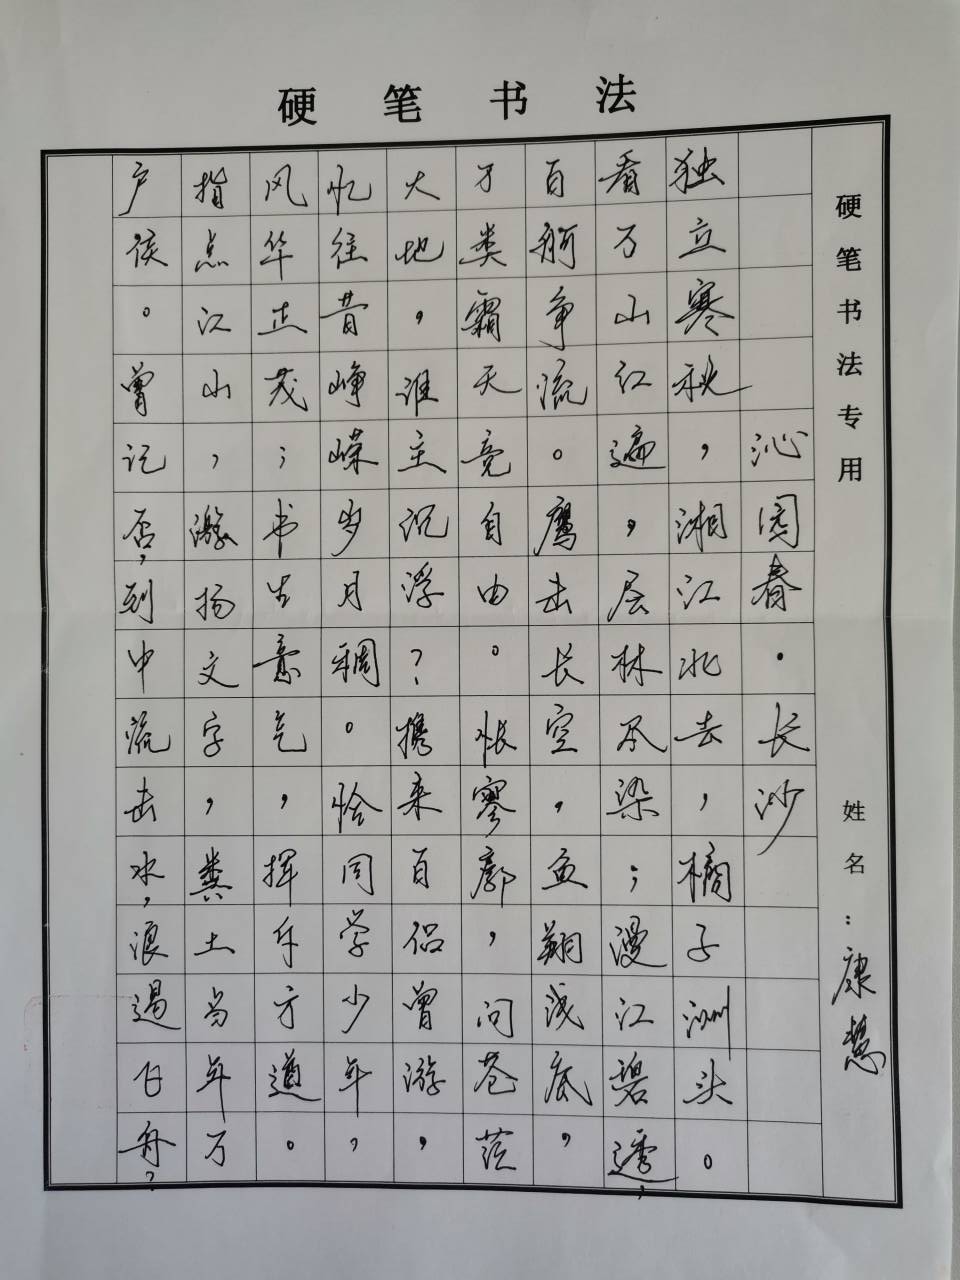 硬笔书法
硬笔书法专用
姓名：康慧
沁园春·长沙
独立寒秋，湘江北去，橘子洲头。
看万山红遍，层林尽染；漫江碧透，
百舸争流。鹰击长空，鱼翔浅底，
万类霜天竞自由。怅寥廓，问苍茫
大地，谁主沉浮？携来百侣曾游，
忆往昔峥嵘岁月稠。恰同学少年，
风华正茂；书生意气，挥斥方遒。
指点江山，激扬文字，粪土当年万
户侯。曾记否，到中流击水，浪遏飞舟？